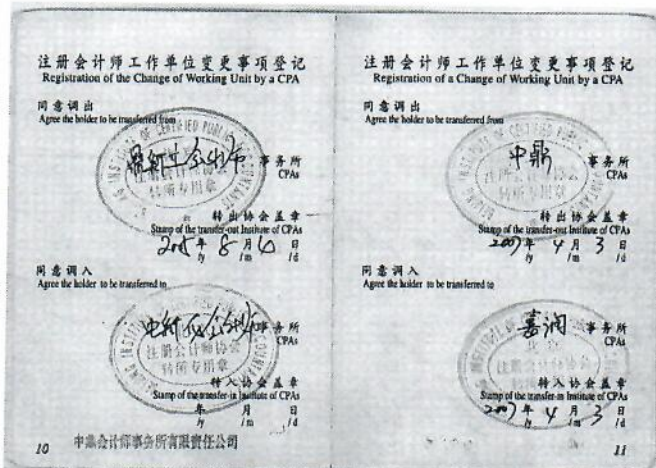 注册会计师工作单位变更事项登记
Registration of the Change of Working Unit by a CPA
同意调出
Agree the holder to be transferred from
事务所
CPAs
转出协会盖章
Stamp of the transfer-out Institute of CPAs
2005年8月4日
/y /m /d
同意调入
Agree the holder to be transferred to
事务所
CPAs
转入协会盖章
Stamp of the transfer-in Institute of CPAs
年 月 日
/y /m /d
10
中鼎会计师事务所有限责任公司
注册会计师工作单位变更事项登记
Registration of a Change of Working Unit by a CPA
同意调出
Agree the holder to be transferred from
中鼎 事务所
CPAs
转出协会盖章
Stamp of the transfer-out Institute of CPAs
2007年4月3日
/y /m /d
同意调入
Agree the holder to be transferred to
嘉润 事务所
CPAs
转入协会盖章
Stamp of the transfer-in Institute of CPAs
2007年4月3日
/y /m /d
11